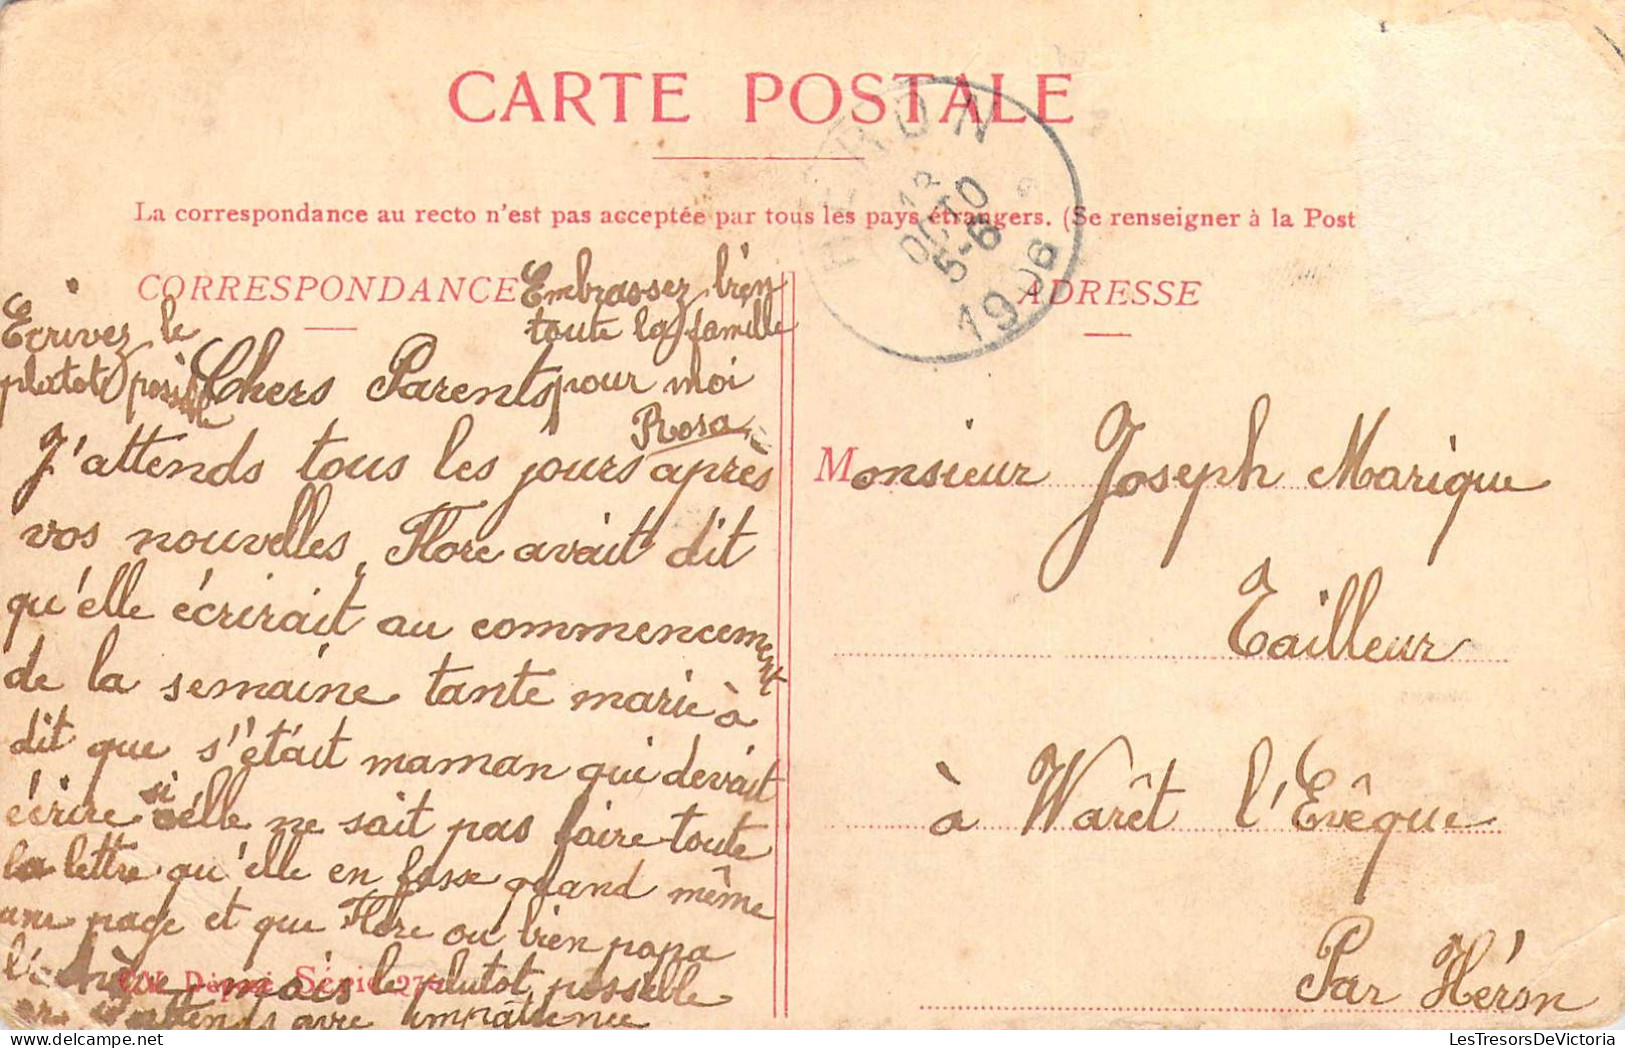 CARTE POSTALE
La correspondance au recto n'est pas acceptée par tous les pays étrangers. (Se renseigner à la Post
CORRESPONDANCE
ADRESSE
HÉRON
13
OCTO
5-6
1908
Embrassez bien
toute la famille
pour moi
Rosa
Ecrivez le
plutot possible
Chers Parents
J'attends tous les jours après
vos nouvelles, Flore avait dit
qu'elle écrirait au commencement
de la semaine tante marie à
dit que s'était maman qui devait
écrire si elle ne sait pas faire toute
la lettre qu'elle en fasse quand même
une page et que Flore ou bien papa
l'achève mais le plutot possible
attends avre impatience
Déposé Série 27
Monsieur Joseph Marique
Tailleur
à Warêt l'Evêque
Par Héron
LesTresorsDeVictoria
LesTresorsDeVictoria.com